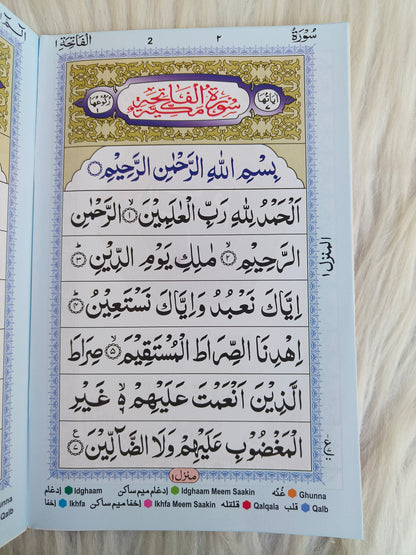 سُوْرَةُ ٢ 2 اَلْفَاتِحَةِ ١
اٰيَاتُهَا ٧ سُوْرَةُ الْفَاتِحَةِ مَكِّيَّةٌ رُكُوْعُهَا ١
بِسْمِ اللّٰهِ الرَّحْمٰنِ الرَّحِيْمِ
اَلْحَمْدُ لِلّٰهِ رَبِّ الْعٰلَمِيْنَ ۙ﴿١﴾ الرَّحْمٰنِ
الرَّحِيْمِ ۙ﴿٢﴾ مٰلِكِ يَوْمِ الدِّيْنِ ؕ﴿٣﴾
اِيَّاكَ نَعْبُدُ وَاِيَّاكَ نَسْتَعِيْنُ ؕ﴿٤﴾
اِهْدِنَا الصِّرَاطَ الْمُسْتَقِيْمَ ۙ﴿٥﴾ صِرَاطَ
الَّذِيْنَ اَنْعَمْتَ عَلَيْهِمْ ۙ﴿٦﴾ غَيْرِ
الْمَغْضُوْبِ عَلَيْهِمْ وَلَا الضَّآلِّيْنَ ﴿٧﴾
اَلْمَنْزِل ١
منزل ١
Ghunna غُنّه Idghaam Meem Saakin إدغام میم ساکن Idghaam إدغام
Qalb قلب Qalqala قلقله Ikhfa Meem Saakin إخفا میم ساکن Ikhfa إخفا
unna
Qalb